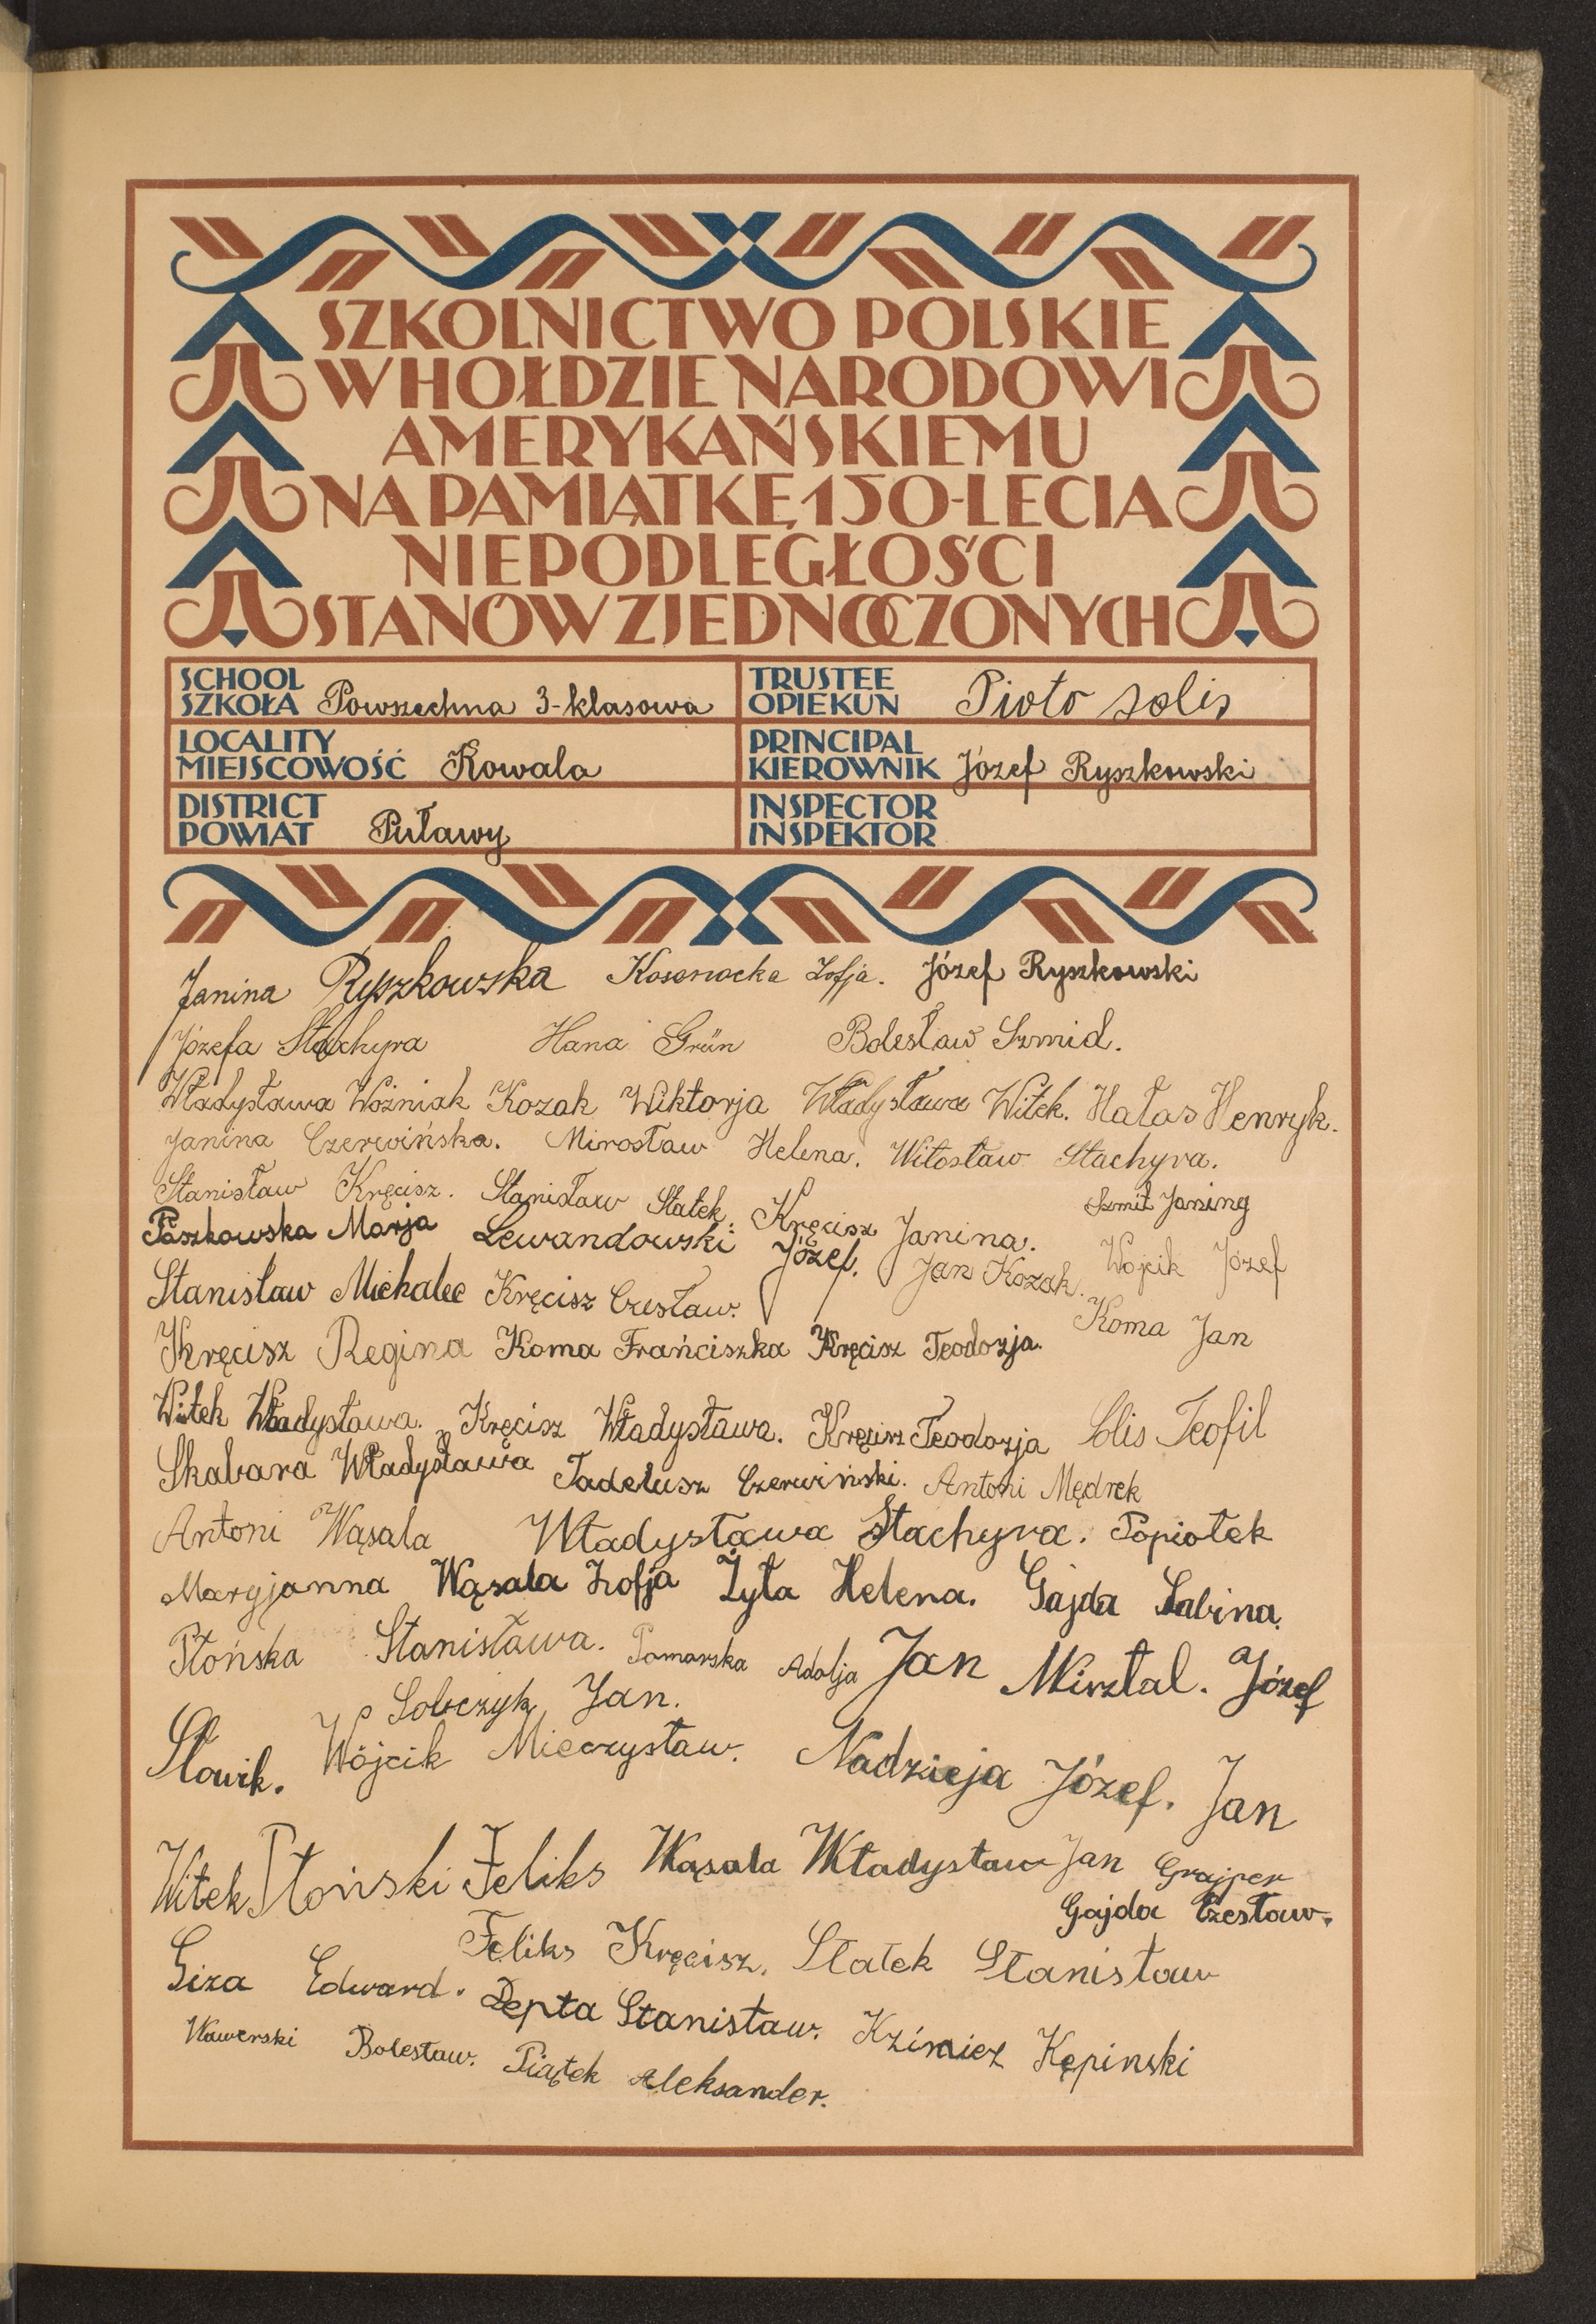 SZKOLNICTWO POLSKIE
W HOŁDZIE NARODOWI
AMERYKAŃSKIEMU
NA PAMIĄTKĘ 150-LECIA
NIEPODLEGŁOŚCI
STANÓW ZJEDNOCZONYCH
SCHOOL
SZKOŁA Powszechna 3-klasowa
TRUSTEE
OPIEKUN Piotr Solis
LOCALITY
MIEJSCOWOŚĆ Kowala
PRINCIPAL
KIEROWNIK Józef Ryszkowski
DISTRICT
POWIAT Puławy
INSPECTOR
INSPEKTOR
Janina Ryszkowska Zofja. Józef Ryszkowski
Józefa Stachyra Hana Grün Bolesław Szmid.
Władysława Woźniak Kozak Wiktorja Władysława Witek. Hałas Henryk.
Janina Czerwińska. Mirosław Helena. Witosław Stachyra.
Stanisław Kręcisz. Stanisław Statek. Kręcisz Janina. Szmit Janing
Paszkowska Marja Lewandowski Józef. Jan Kozak. Wojcik Józef
Stanisław Michalec Kręcisz Czesław.
Kręcisz Regina Koma Frańciszka Kręcisz Teodozja. Koma Jan
Witek Władysława. Kręcisz Władysława. Kręcisz Teodozja Solis Teofil
Skabara Władysława Tadeusz Czerwiński. Antoni Mędrek
Antoni Wąsala Władysława Stachyra. Popiołek
Maryjanna Wąsala Zofja Żyła Helena. Gajda Sabina.
Płońska Stanisława. Pomarska Adolja Jan Mirztal. Józef
Sobczyk Jan.
Słowik. Wójcik Mieczysław. Nadzieja Józef. Jan
Witek Płoński Feliks Wąsala Władysław Jan Grajper
Gajda Czesław.
Giza Edward. Feliks Kręcisz. Statek Stanisław
Depta Stanisław. Kzimierz Kępinski
Wawerski Bolesław. Piątek Aleksander.